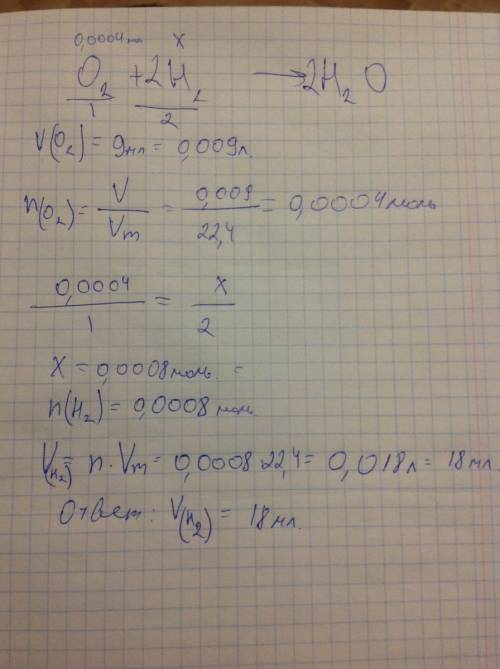 0,0004 моль x
O₂ + 2H₂ → 2H₂O
1 2
V(O₂) = 9 мл = 0,009 л.
n(O₂) = V/Vm = 0,009/22,4 = 0,0004 моль
0,0004/1 = x/2
x = 0,0008 моль. =
n(H₂) = 0,0008 моль.
V(H₂) = n · Vm = 0,0008 · 22,4 = 0,018 л = 18 мл.
Ответ: V(H₂) = 18 мл.